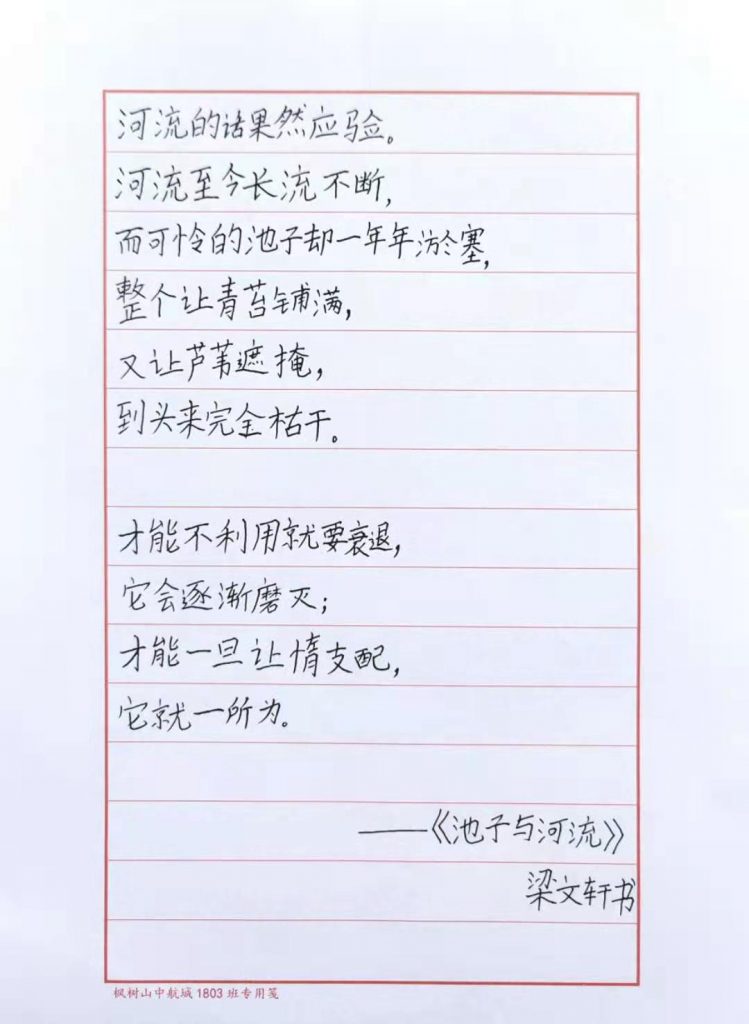 河流的话果然应验。
河流至今长流不断，
而可怜的池子却一年年淤塞，
整个让青苔铺满，
又让芦苇遮掩，
到头来完全枯干。
才能不利用就要衰退，
它会逐渐磨灭；
才能一旦让惰支配，
它就一所为。
——《池子与河流》
梁文轩书
枫树山中航城1803班专用笺